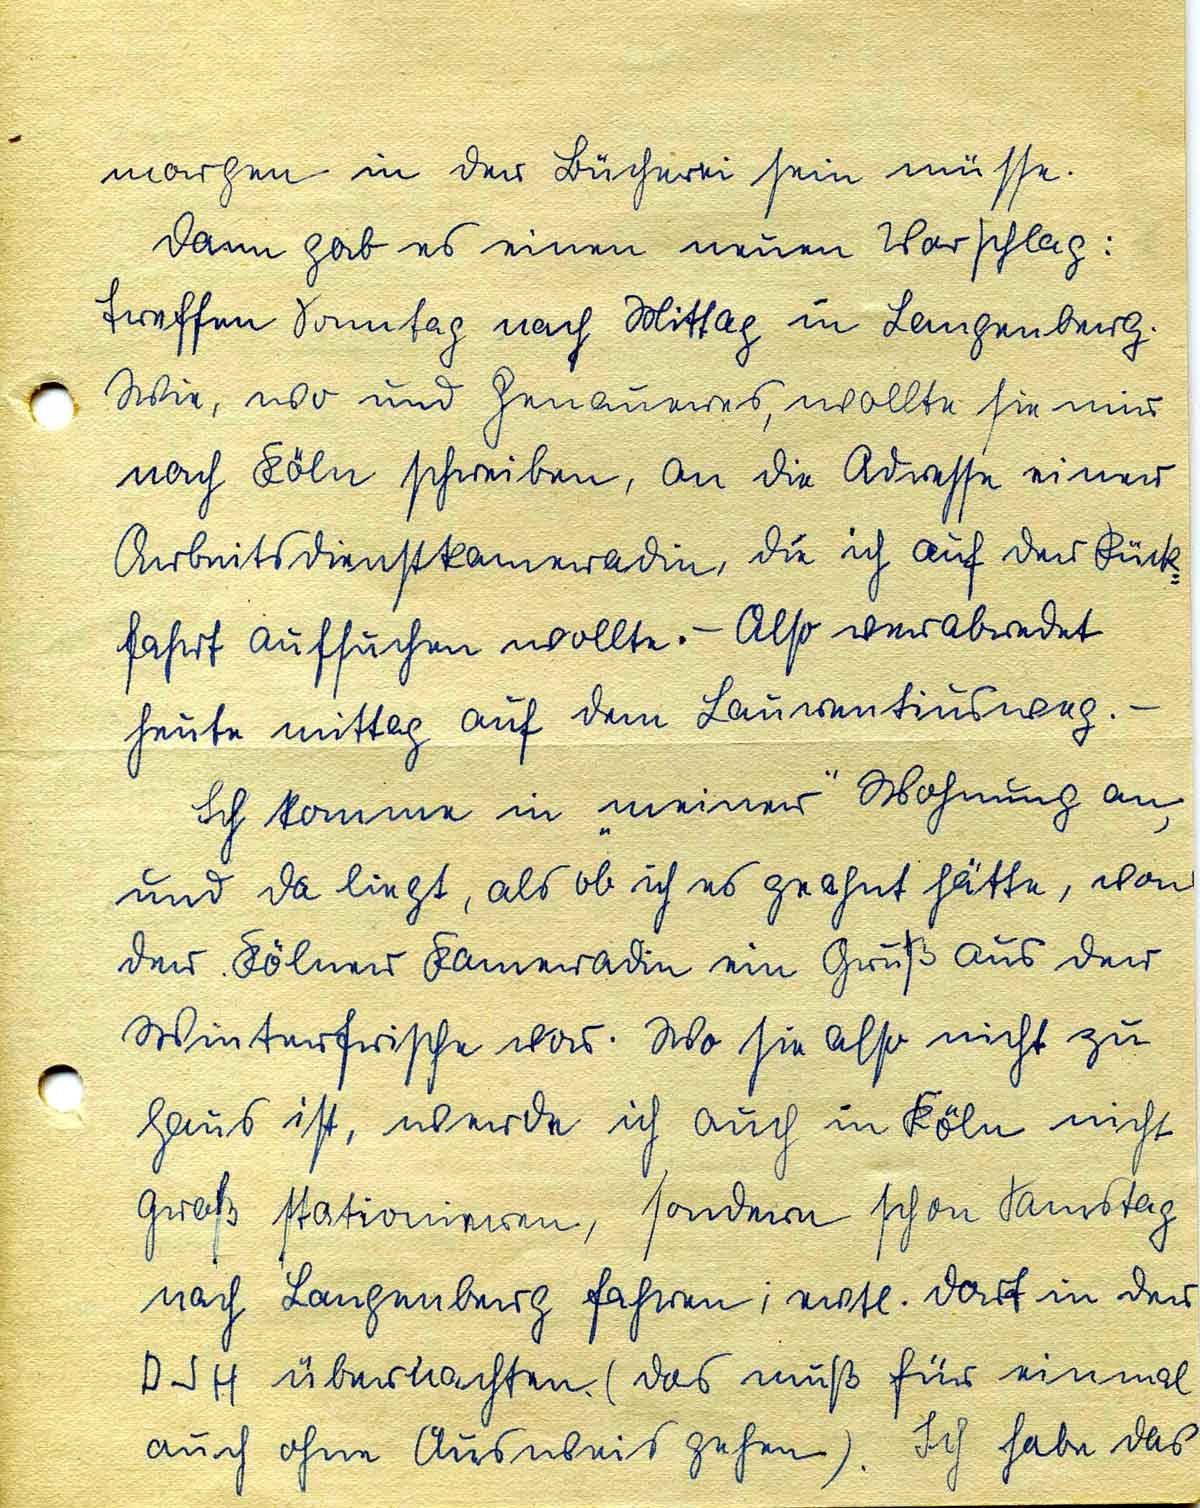 morgen in der Bücherei sein müsse.
Dann gab es einen neuen Vorschlag:
treffen Sonntag nach Mittag in Langenberg.
Wie, wo und Genaueres, wollte sie mir
nach Köln schreiben, an die Adresse einer
Arbeitsdienstkameradin, die ich auf der Rück=
fahrt aufsuchen wollte. – Also verabredet
heute mittag auf dem Laurentiusweg. –
Ich komme in „meiner“ Wohnung an,
und da liegt, als ob ich es geahnt hätte, von
der Kölner Kameradin ein Gruß aus der
Winterfrische vor. Wo sie also nicht zu
haus ist, werde ich auch in Köln nicht
groß stationieren, sondern schon Samstag
nach Langenberg fahren; evtl. dort in der
DJH übernachten. (das muß für einmal
auch ohne Ausweis gehen). Ich habe das